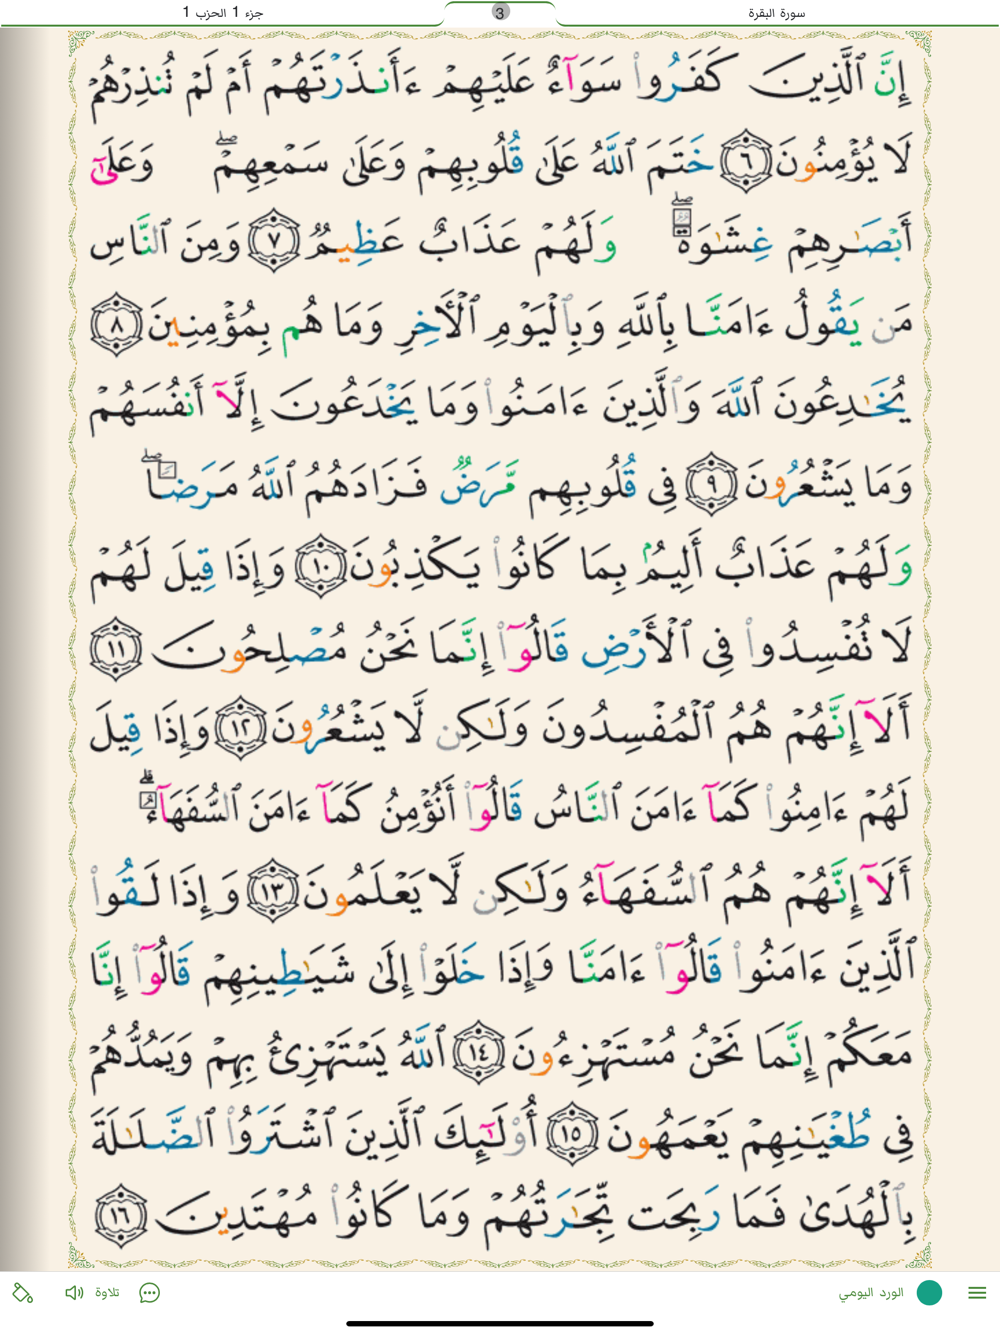 سورة البقرة
3
جزء 1 الحزب 1
إِنَّ ٱلَّذِينَ كَفَرُوا۟ سَوَآءٌ عَلَيْهِمْ ءَأَنذَرْتَهُمْ أَمْ لَمْ تُنذِرْهُمْ
لَا يُؤْمِنُونَ ٦ خَتَمَ ٱللَّهُ عَلَىٰ قُلُوبِهِمْ وَعَلَىٰ سَمْعِهِمْ ۖ وَعَلَىٰٓ
أَبْصَـٰرِهِمْ غِشَـٰوَةٌ ۖ وَلَهُمْ عَذَابٌ عَظِيمٌ ٧ وَمِنَ ٱلنَّاسِ
مَن يَقُولُ ءَامَنَّا بِٱللَّهِ وَبِٱلْيَوْمِ ٱلْـَٔاخِرِ وَمَا هُم بِمُؤْمِنِينَ ٨
يُخَـٰدِعُونَ ٱللَّهَ وَٱلَّذِينَ ءَامَنُوا۟ وَمَا يَخْدَعُونَ إِلَّآ أَنفُسَهُمْ
وَمَا يَشْعُرُونَ ٩ فِى قُلُوبِهِم مَّرَضٌ فَزَادَهُمُ ٱللَّهُ مَرَضًا ۖ
وَلَهُمْ عَذَابٌ أَلِيمٌۢ بِمَا كَانُوا۟ يَكْذِبُونَ ١٠ وَإِذَا قِيلَ لَهُمْ
لَا تُفْسِدُوا۟ فِى ٱلْأَرْضِ قَالُوٓا۟ إِنَّمَا نَحْنُ مُصْلِحُونَ ١١
أَلَآ إِنَّهُمْ هُمُ ٱلْمُفْسِدُونَ وَلَـٰكِن لَّا يَشْعُرُونَ ١٢ وَإِذَا قِيلَ
لَهُمْ ءَامِنُوا۟ كَمَآ ءَامَنَ ٱلنَّاسُ قَالُوٓا۟ أَنُؤْمِنُ كَمَآ ءَامَنَ ٱلسُّفَهَآءُ ۗ
أَلَآ إِنَّهُمْ هُمُ ٱلسُّفَهَآءُ وَلَـٰكِن لَّا يَعْلَمُونَ ١٣ وَإِذَا لَقُوا۟
ٱلَّذِينَ ءَامَنُوا۟ قَالُوٓا۟ ءَامَنَّا وَإِذَا خَلَوْا۟ إِلَىٰ شَيَـٰطِينِهِمْ قَالُوٓا۟ إِنَّا
مَعَكُمْ إِنَّمَا نَحْنُ مُسْتَهْزِءُونَ ١٤ ٱللَّهُ يَسْتَهْزِئُ بِهِمْ وَيَمُدُّهُمْ
فِى طُغْيَـٰنِهِمْ يَعْمَهُونَ ١٥ أُو۟لَـٰٓئِكَ ٱلَّذِينَ ٱشْتَرَوُا۟ ٱلضَّلَـٰلَةَ
بِٱلْهُدَىٰ فَمَا رَبِحَت تِّجَـٰرَتُهُمْ وَمَا كَانُوا۟ مُهْتَدِينَ ١٦
الورد اليومي
تلاوة